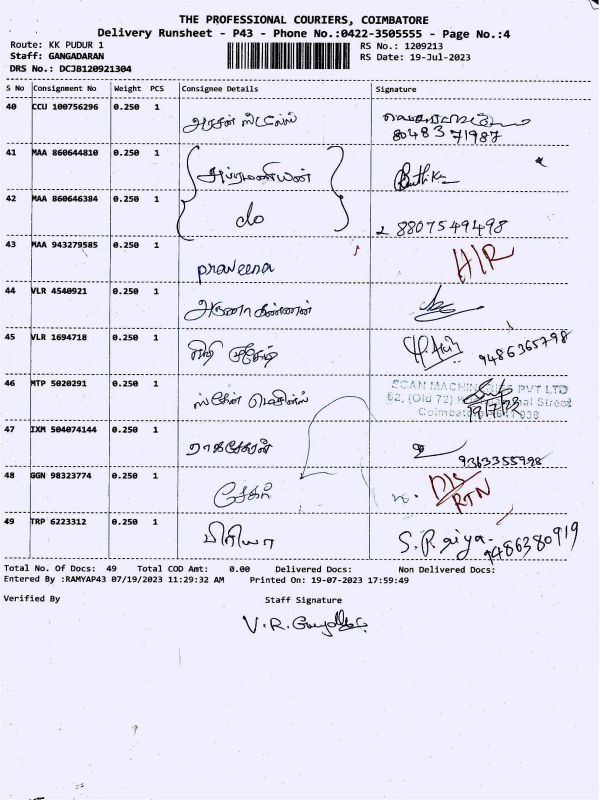 THE PROFESSIONAL COURIERS, COIMBATORE
Delivery Runsheet - P43 - Phone No.:0422-3505555 - Page No.:4
Route: KK PUDUR 1 RS No.: 1209213
Staff: GANGADARAN RS Date: 19-Jul-2023
DRS No.: DCJB120921304
S No Consignment No Weight PCS Consignee Details Signature
40 CCU 100756296 0.250 1 அரசன் ஸ்டீல்ஸ்
8048371987
41 MAA 860644810 0.250 1
42 MAA 860646384 0.250 1 do 8807549498
43 MAA 943279585 0.250 1 praveena
44 VLR 4540921 0.250 1 அருணா கண்ணன்
45 VLR 1694718 0.250 1 9486365798
46 MTP 5020291 0.250 1 ஸ்கேன் மெசின்ஸ் SCAN PVT LTD
62, (Old 72) Street
19/7/23
47 IXM 504074144 0.250 1 ராஜசேகரன் 9363355998
48 GGN 98323774 0.250 1 சேகர் RTN
49 TRP 6223312 0.250 1 பிரியா S. Raiya 9486380919
Total No. Of Docs: 49 Total COD Amt: 0.00 Delivered Docs: Non Delivered Docs:
Entered By :RAMYAP43 07/19/2023 11:29:32 AM Printed On: 19-07-2023 17:59:49
Verified By Staff Signature
V.R.